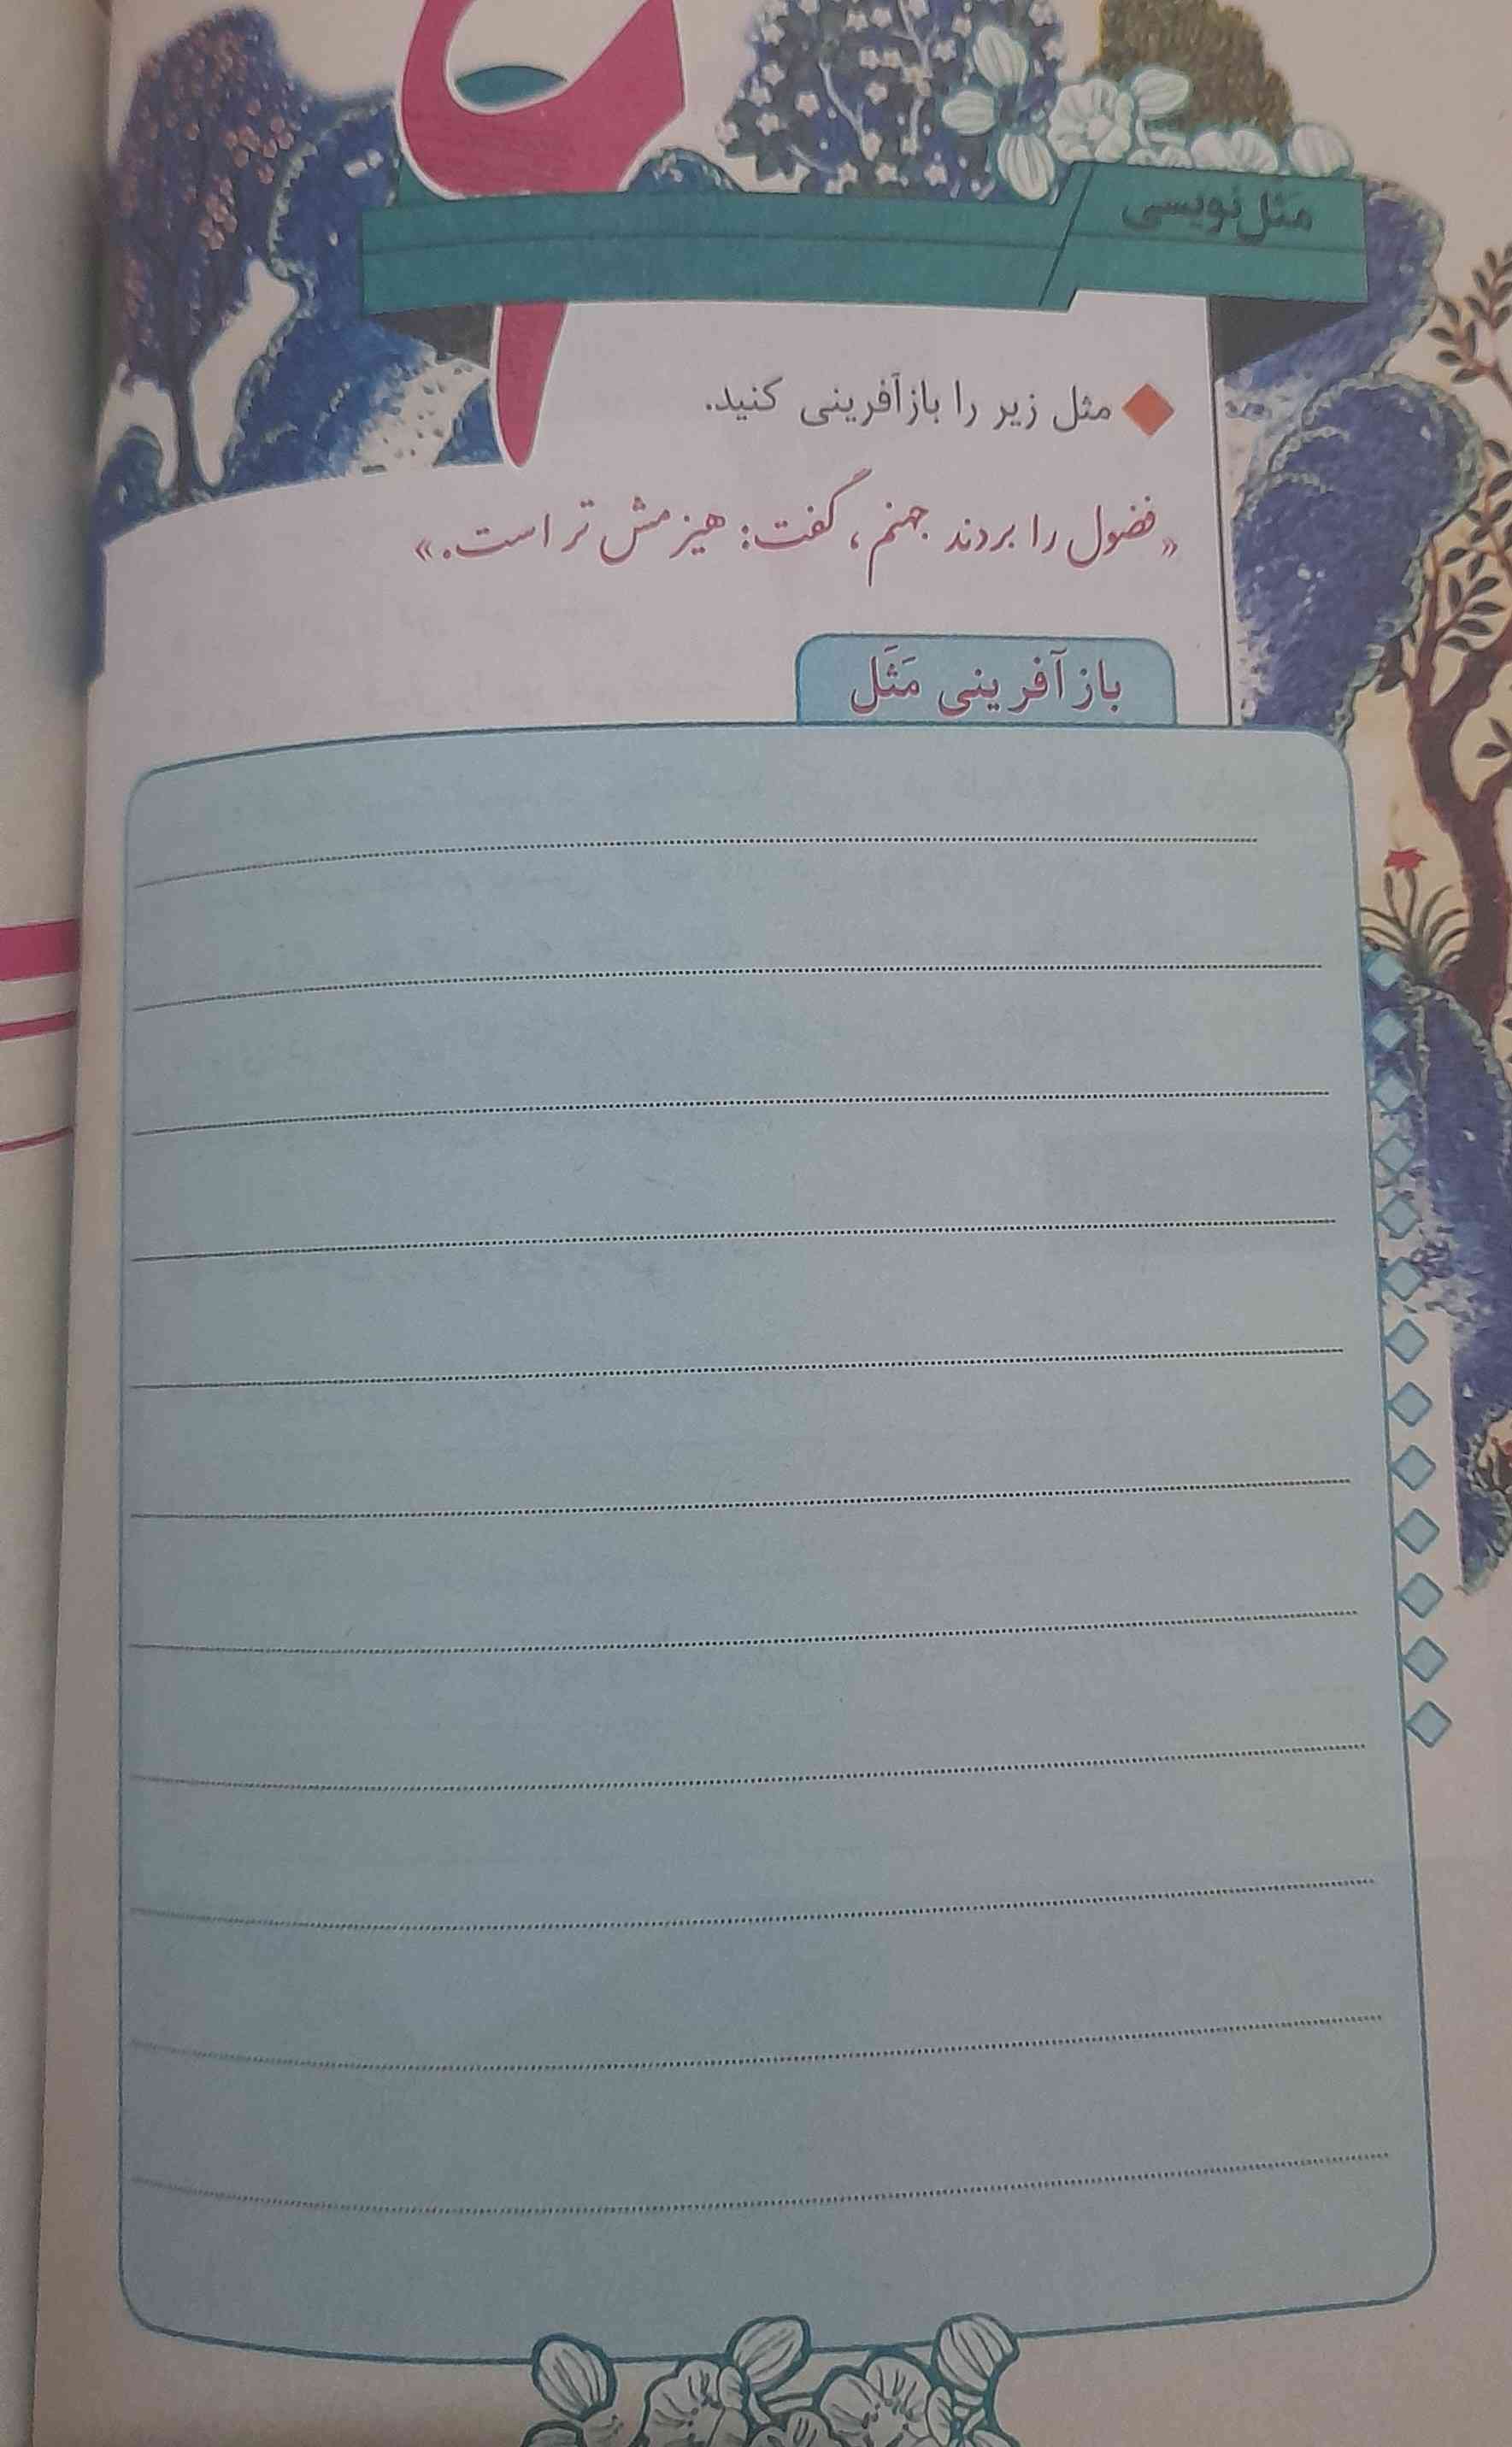 مَثل‌نویسی
مثل زیر را بازآفرینی کنید.
«فضول را بردند جهنم، گفت: هیزمش تر است.»
بازآفرینی مَثَل